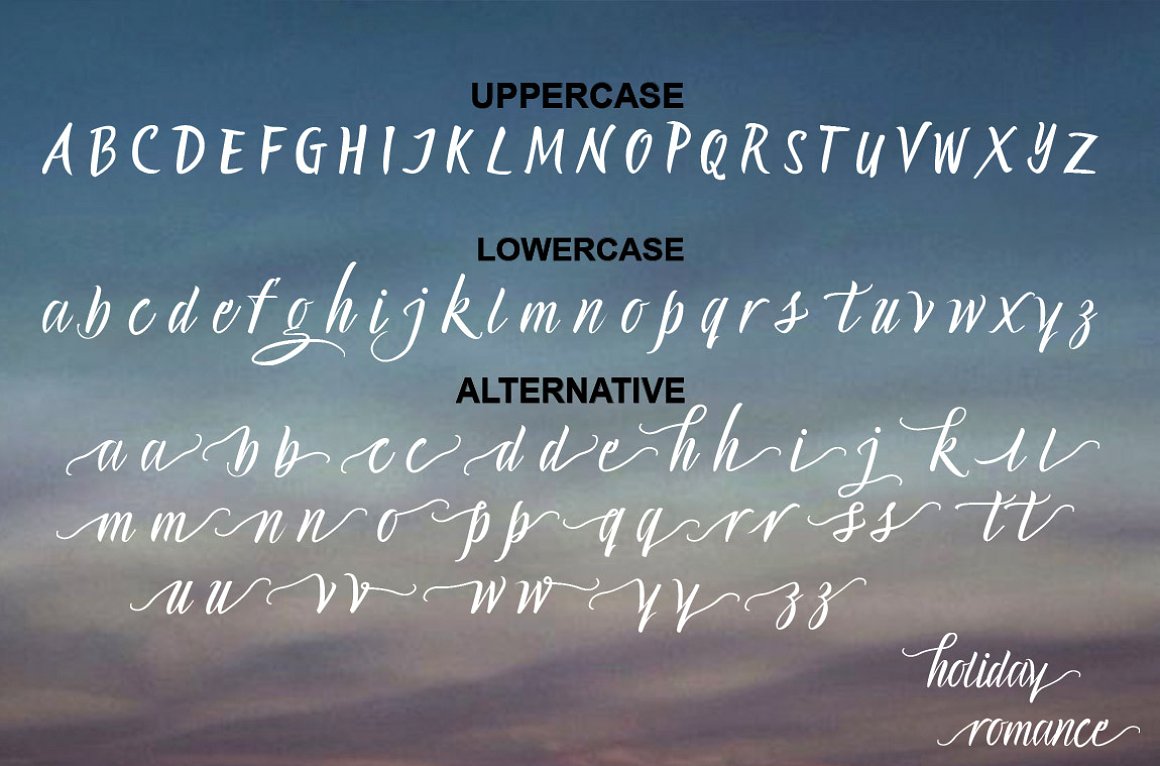 UPPERCASE
A B C D E F G H I J K L M N O P Q R S T U V W X Y Z
LOWERCASE
a b c d e f g h i j k l m n o p q r s t u v w x y z
ALTERNATIVE
a a b b c c d d e h h i j k l l
m m n n o p p q q r r s s t t
u u v v w w y y z z
holiday
romance